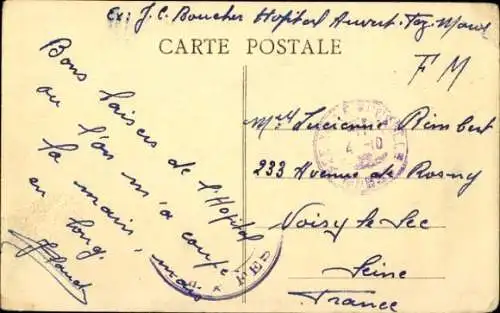 Ex: J.C. Boucher Hopital Auvert. Fez. Maroc
CARTE POSTALE
F M
Bons baisers de l'Hopital
ou l'on m'a coupé
la main, mais
en long.
Melle Lucienne Rimbert
233 Avenue de Rosny
Noisy le Sec
Seine
France
4 -10
FES